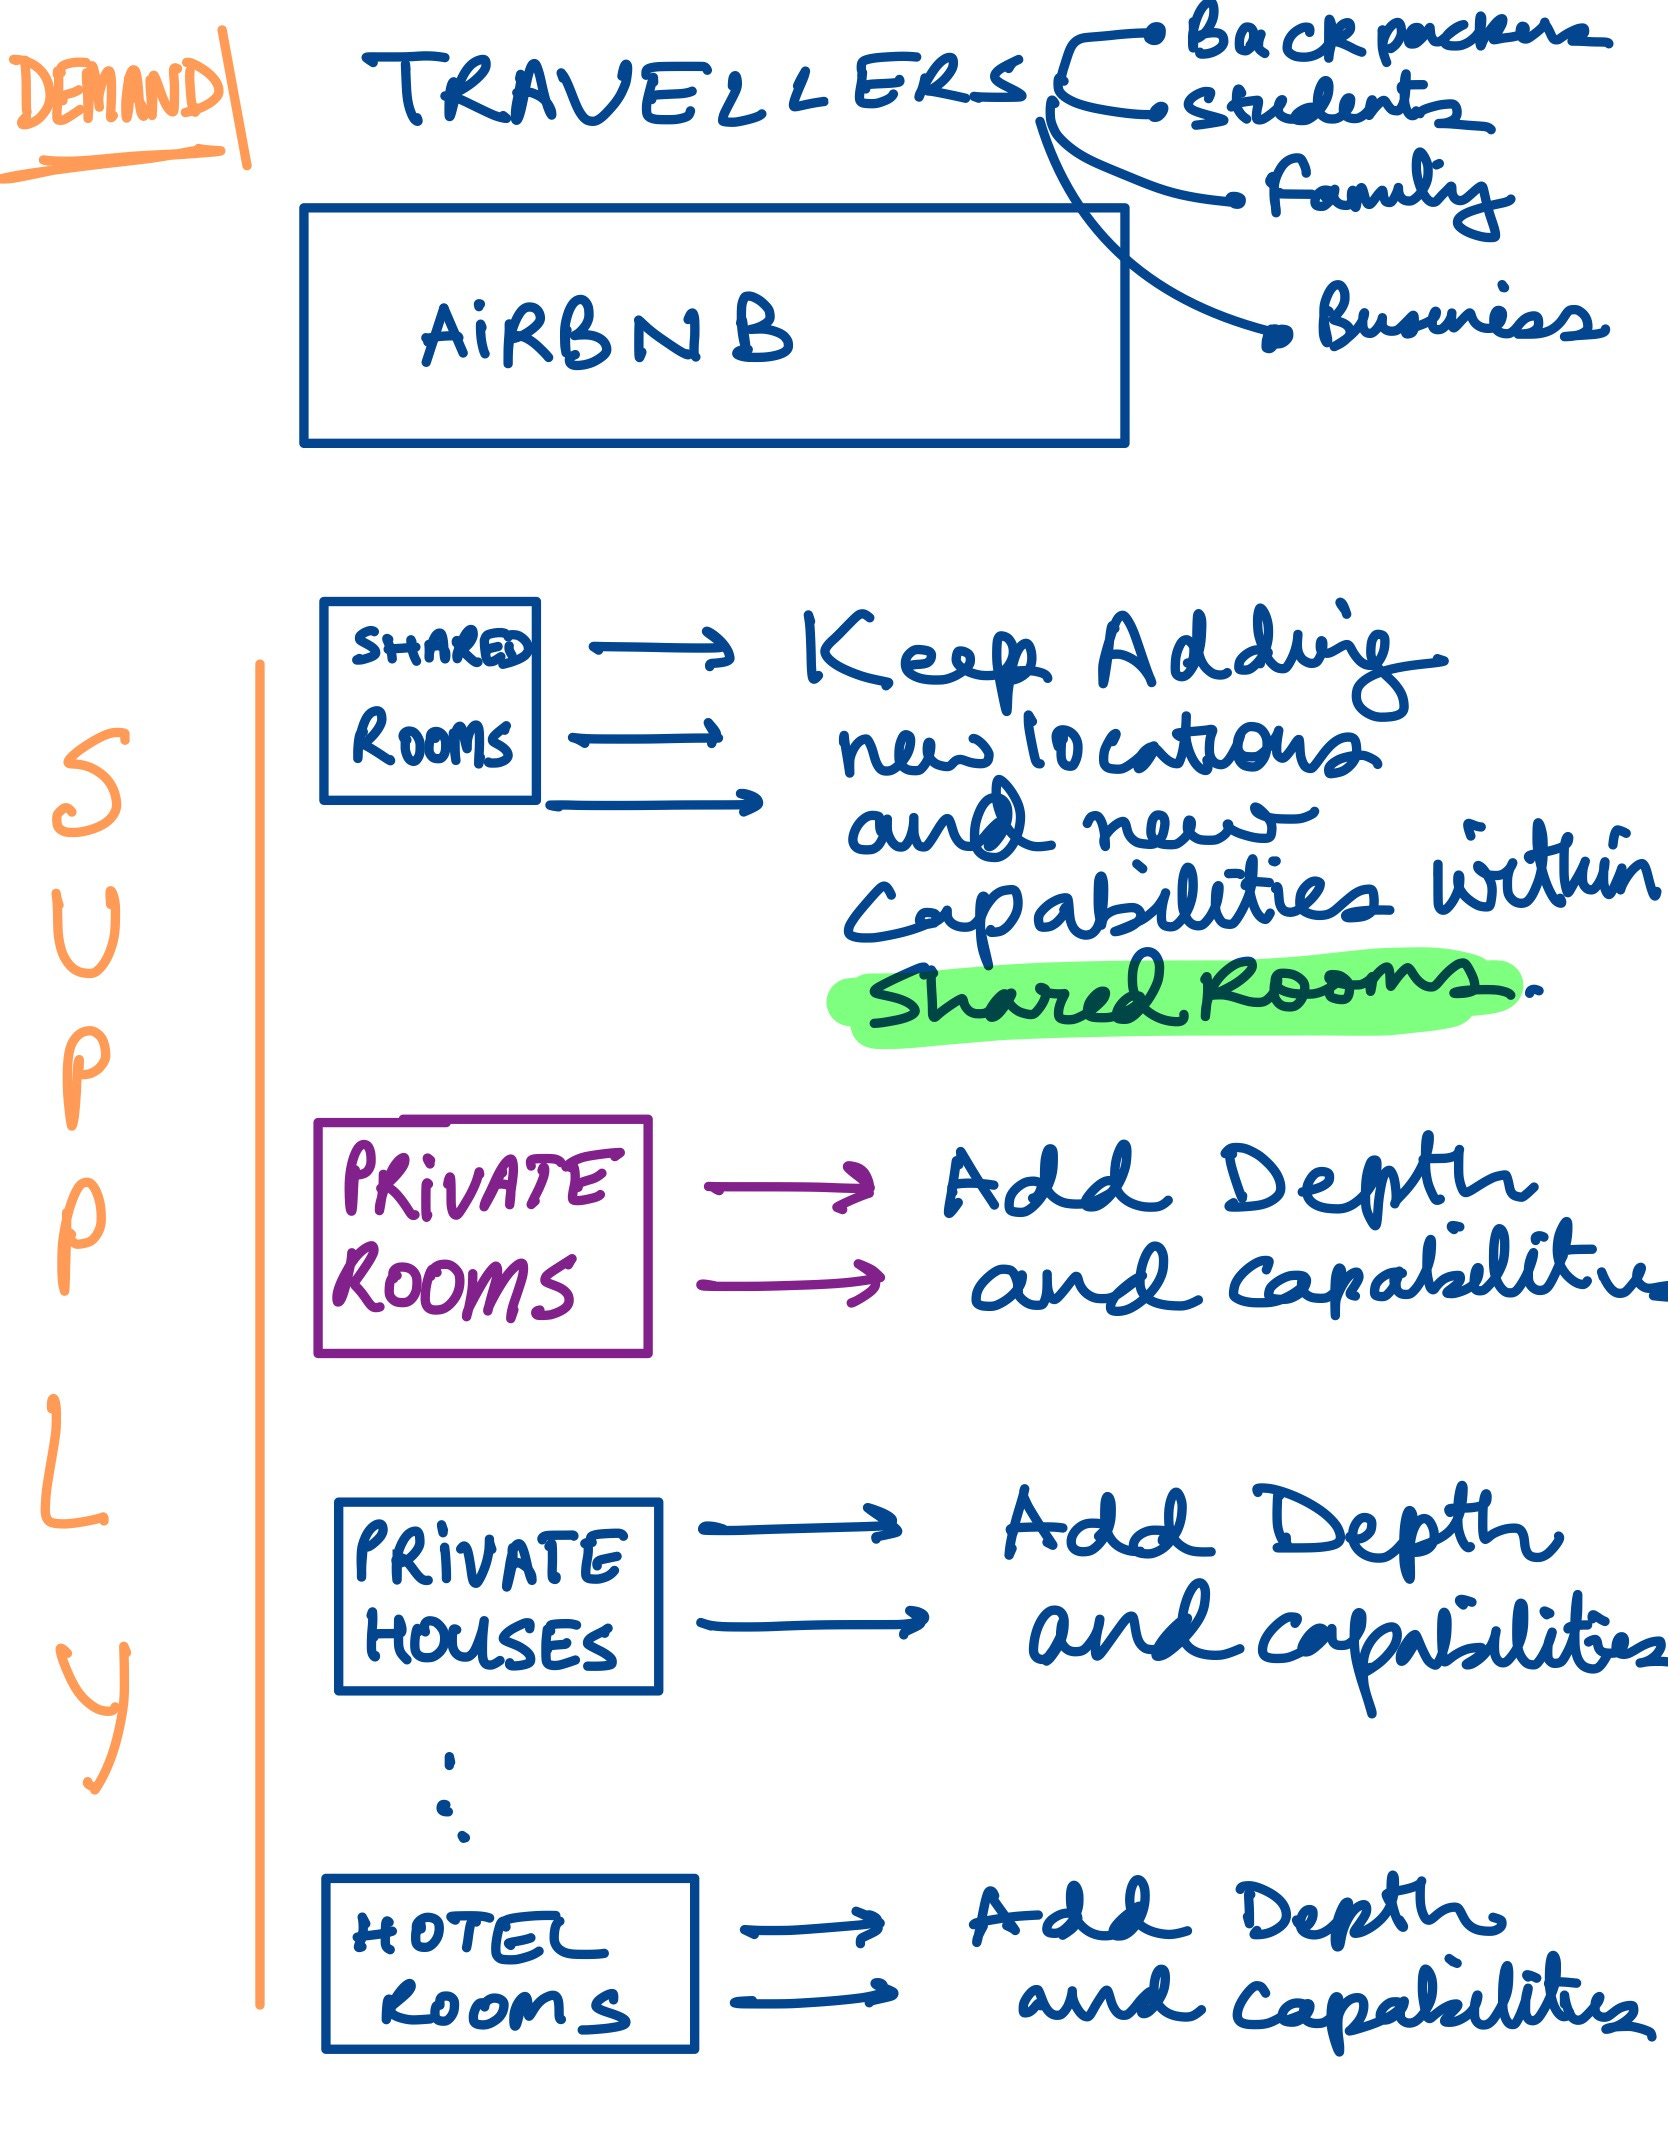 DEMAND
TRAVELLERS
Backpackers
Students
Family
Business
AiRBNB
SUPPLY
SHARED
ROOMS
Keep Adding
new locations
and new
capabilities within
Shared Rooms.
PRiVATE
ROOMS
Add Depth
and capabilities
PRiVATE
HOUSES
Add Depth
and capabilities
HOTEL
ROOMS
Add Depth
and capabilities